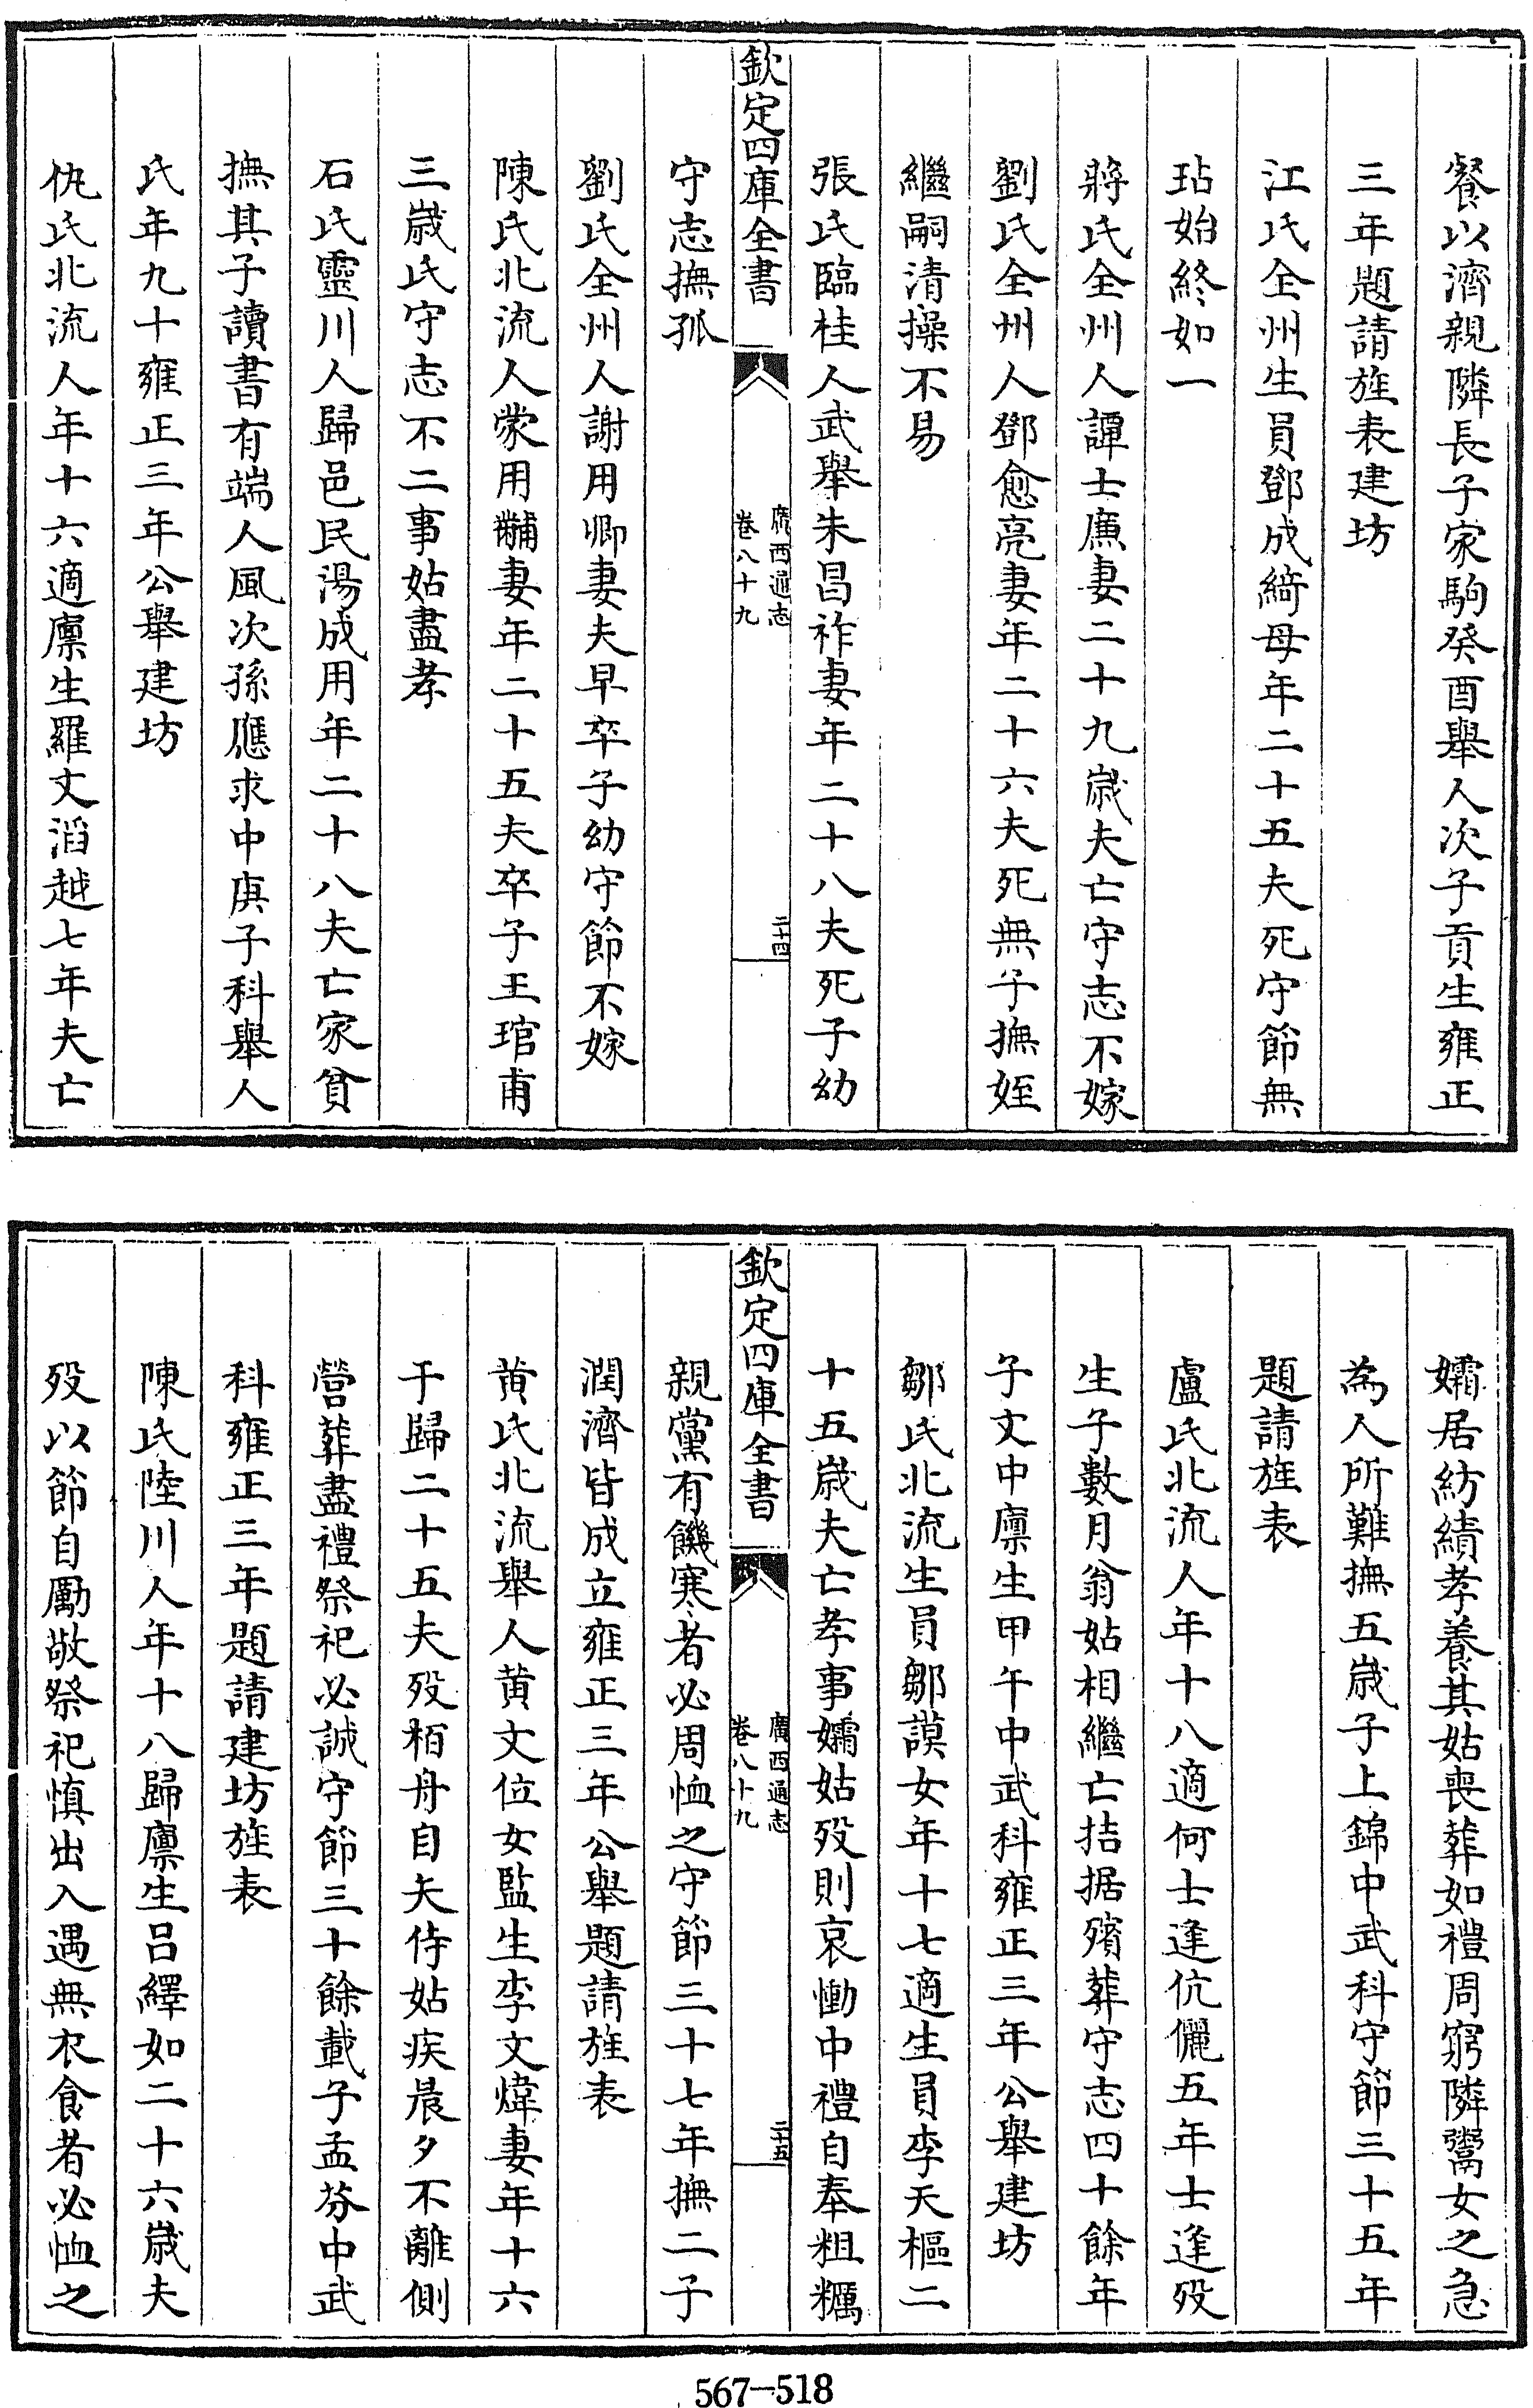 餐以濟親隣長子家駒癸酉舉人次子貢生雍正
三年題請旌表建坊
江氏全州生員鄧成綺母年二十五夫死守節無
玷始終如一
蔣氏全州人譚士廉妻二十九歲夫亡守志不嫁
劉氏全州人鄧愈亮妻年二十六夫死無子撫姪
繼嗣清操不易
張氏臨桂人武舉朱昌祚妻年二十八夫死子幼
欽定四庫全書
廣西通志
卷八十九
二十四
守志撫孤
劉氏全州人謝用卿妻夫早卒子幼守節不嫁
陳氏北流人蒙用黼妻年二十五夫卒子王琯甫
三歲氏守志不二事姑盡孝
石氏靈川人歸邑民湯成用年二十八夫亡家貧
撫其子讀書有端人風次孫應求中庚子科舉人
氏年九十雍正三年公舉建坊
仇氏北流人年十六適廪生羅文滔越七年夫亡
孀居紡績孝養其姑喪葬如禮周窮隣鬻女之急
為人所難撫五歲子上錦中武科守節三十五年
題請旌表
盧氏北流人年十八適何士逢伉儷五年士逢殁
生子數月翁姑相繼亡拮据殯葬守志四十餘年
子文中廪生甲午中武科雍正三年公舉建坊
鄒氏北流生員鄒謨女年十七適生員李天樞二
十五歲夫亡孝事孀姑殁則哀慟中禮自奉粗糲
欽定四庫全書
廣西通志
卷八十九
二十五
親黨有饑寒者必周恤之守節三十七年撫二子
潤濟皆成立雍正三年公舉題請旌表
黄氏北流舉人黄文位女監生李文煒妻年十六
于歸二十五夫殁栢舟自矢侍姑疾晨夕不離側
營葬盡禮祭祀必誠守節三十餘載子孟芬中武
科雍正三年題請建坊旌表
陳氏陸川人年十八歸廪生呂繹如二十六歲夫
殁以節自勵敬祭祀慎出入遇無衣食者必恤之
567-518